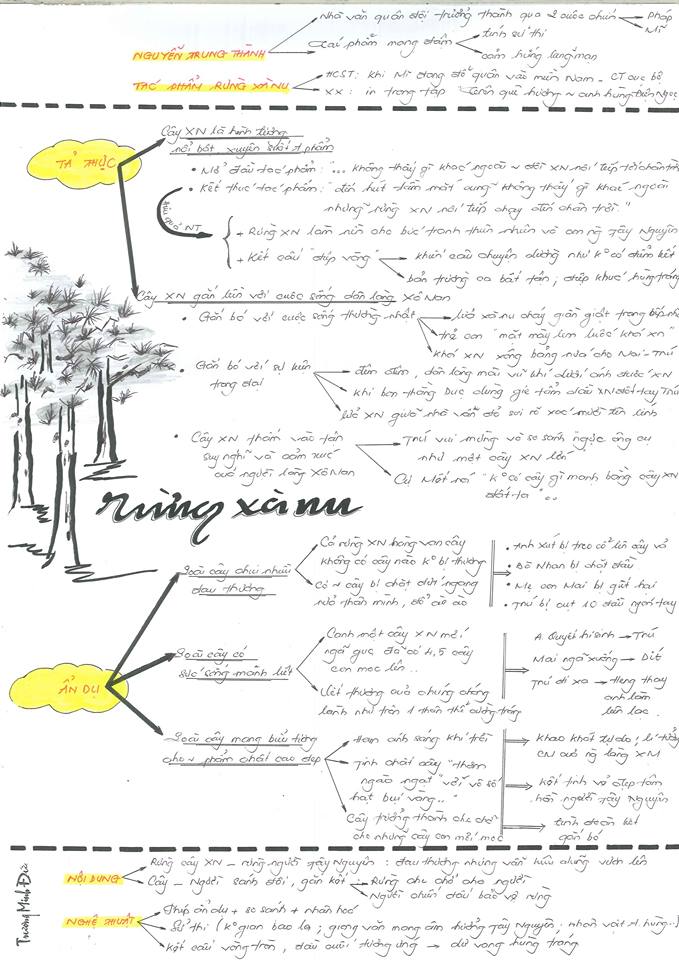 Nhà văn quân đội trưởng thành qua 2 cuộc chiến
Pháp
Mĩ
NGUYỄN TRUNG THÀNH
Tác phẩm mang đậm
tính sử thi
cảm hứng lãng mạn
TÁC PHẨM RỪNG XÀ NU
HCST: khi Mĩ đang đổ quân vào miền Nam - CT cục bộ
XX: in trong tập "Trên quê hương ~ anh hùng Điện Ngọc"
TẢ THỰC
Cây XN là hình tượng
nổi bật xuyên suốt t.phẩm
• Mở đầu tác phẩm: "... không thấy gì khác ngoài ~ đồi XN nối tiếp tới chân trời"
• Kết thúc tác phẩm: "đến hút tầm mắt cũng không thấy gì khác ngoài
những rừng XN nối tiếp chạy đến chân trời."
hiệu quả NT
+ Rừng XN làm nền cho bức tranh thiên nhiên và con ng Tây Nguyên
+ Kết cấu "đúp vòng"
khiến câu chuyện dường như kº có điểm kết
bản trường ca bất tận; điệp khúc hùng tráng
Cây XN gắn liền với cuộc sống dân làng Xô Man
• Gắn bó với cuộc sống thường nhật
lửa xà nu cháy giần giật trong bếp nhà
trẻ con "mặt mày lem luốc khói xn"
khói XN xông bảng nứa cho Mai - Tnú
• Gắn bó với sự kiện
trọng đại
đêm đêm, dân làng mài vũ khí dưới ánh đuốc XN
khi bọn thằng Dục dùng giẻ tẩm dầu XN đốt tay Tnú
lửa XN giữa nhà vẫn đỏ soi rõ xác mười tên lính
• Cây XN thấm vào tận
suy nghĩ và cảm xúc
của người làng Xô Man
Tnú vui mừng và so sánh "ngực ông cụ
như một cây XN lớn"
Cụ Mết nói "kº có cây gì mạnh bằng cây XN
đất ta"..
rừng xà nu
ẨN DỤ
Loài cây chịu nhiều
đau thương
Cả rừng XN hàng vạn cây
không có cây nào kº bị thương
Có ~ cây bị chặt đứt ngang
nửa thân mình, đổ ào ào
• Anh Xút bị treo cổ lên cây vả
• Bà Nhan bị chặt đầu
• Mẹ con Mai bị giết hại
• Tnú bị cụt 10 đầu ngón tay
Loài cây có
sức sống mãnh liệt
Cạnh một cây XN mới
ngã gục đã có 4,5 cây
con mọc lên..
Vết thương của chúng chóng
lành như trên 1 thân thể cường tráng
A. Quyết hi sinh → Tnú
Mai ngã xuống → Dít
Tnú đi xa → Heng thay
anh làm
liên lạc
Loài cây mang biểu tượng
cho ~ phẩm chất cao đẹp
Ham ánh sáng khí trời
Tính chất cây "thơm
ngào ngạt" với vô số
hạt bụi vàng.."
Cây trưởng thành che chở
che những cây con mới mọc
khao khát tự do, lí tưởng
CM của ng làng XM
kết tinh vẻ đẹp tâm
hồn người Tây Nguyên
tình đoàn kết
gắn bó
NỘI DUNG
Rừng cây XN - rừng người Tây Nguyên: đau thương nhưng vẫn kiêu dũng vươn lên
Cây - Người sánh đôi, gắn kết
Rừng che chở cho người
Người chiến đấu bảo vệ rừng
NGHỆ THUẬT
Phép ẩn dụ + so sánh + nhân hoá
Sử thi (kº gian bao la; giọng văn mang âm hưởng Tây Nguyên, nhân vật a.hùng..)
Kết cấu vòng tròn, đầu cuối tương ứng → dư vang hùng tráng
Trương Minh Đức